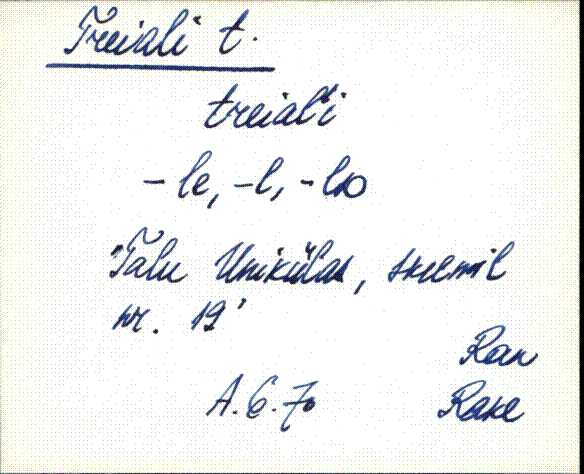 Treiali t.
treial'i
-le, -l, -lt
"Talu Unikülas, skeemil
nr. 19"
Ran
A.C.70 Rake